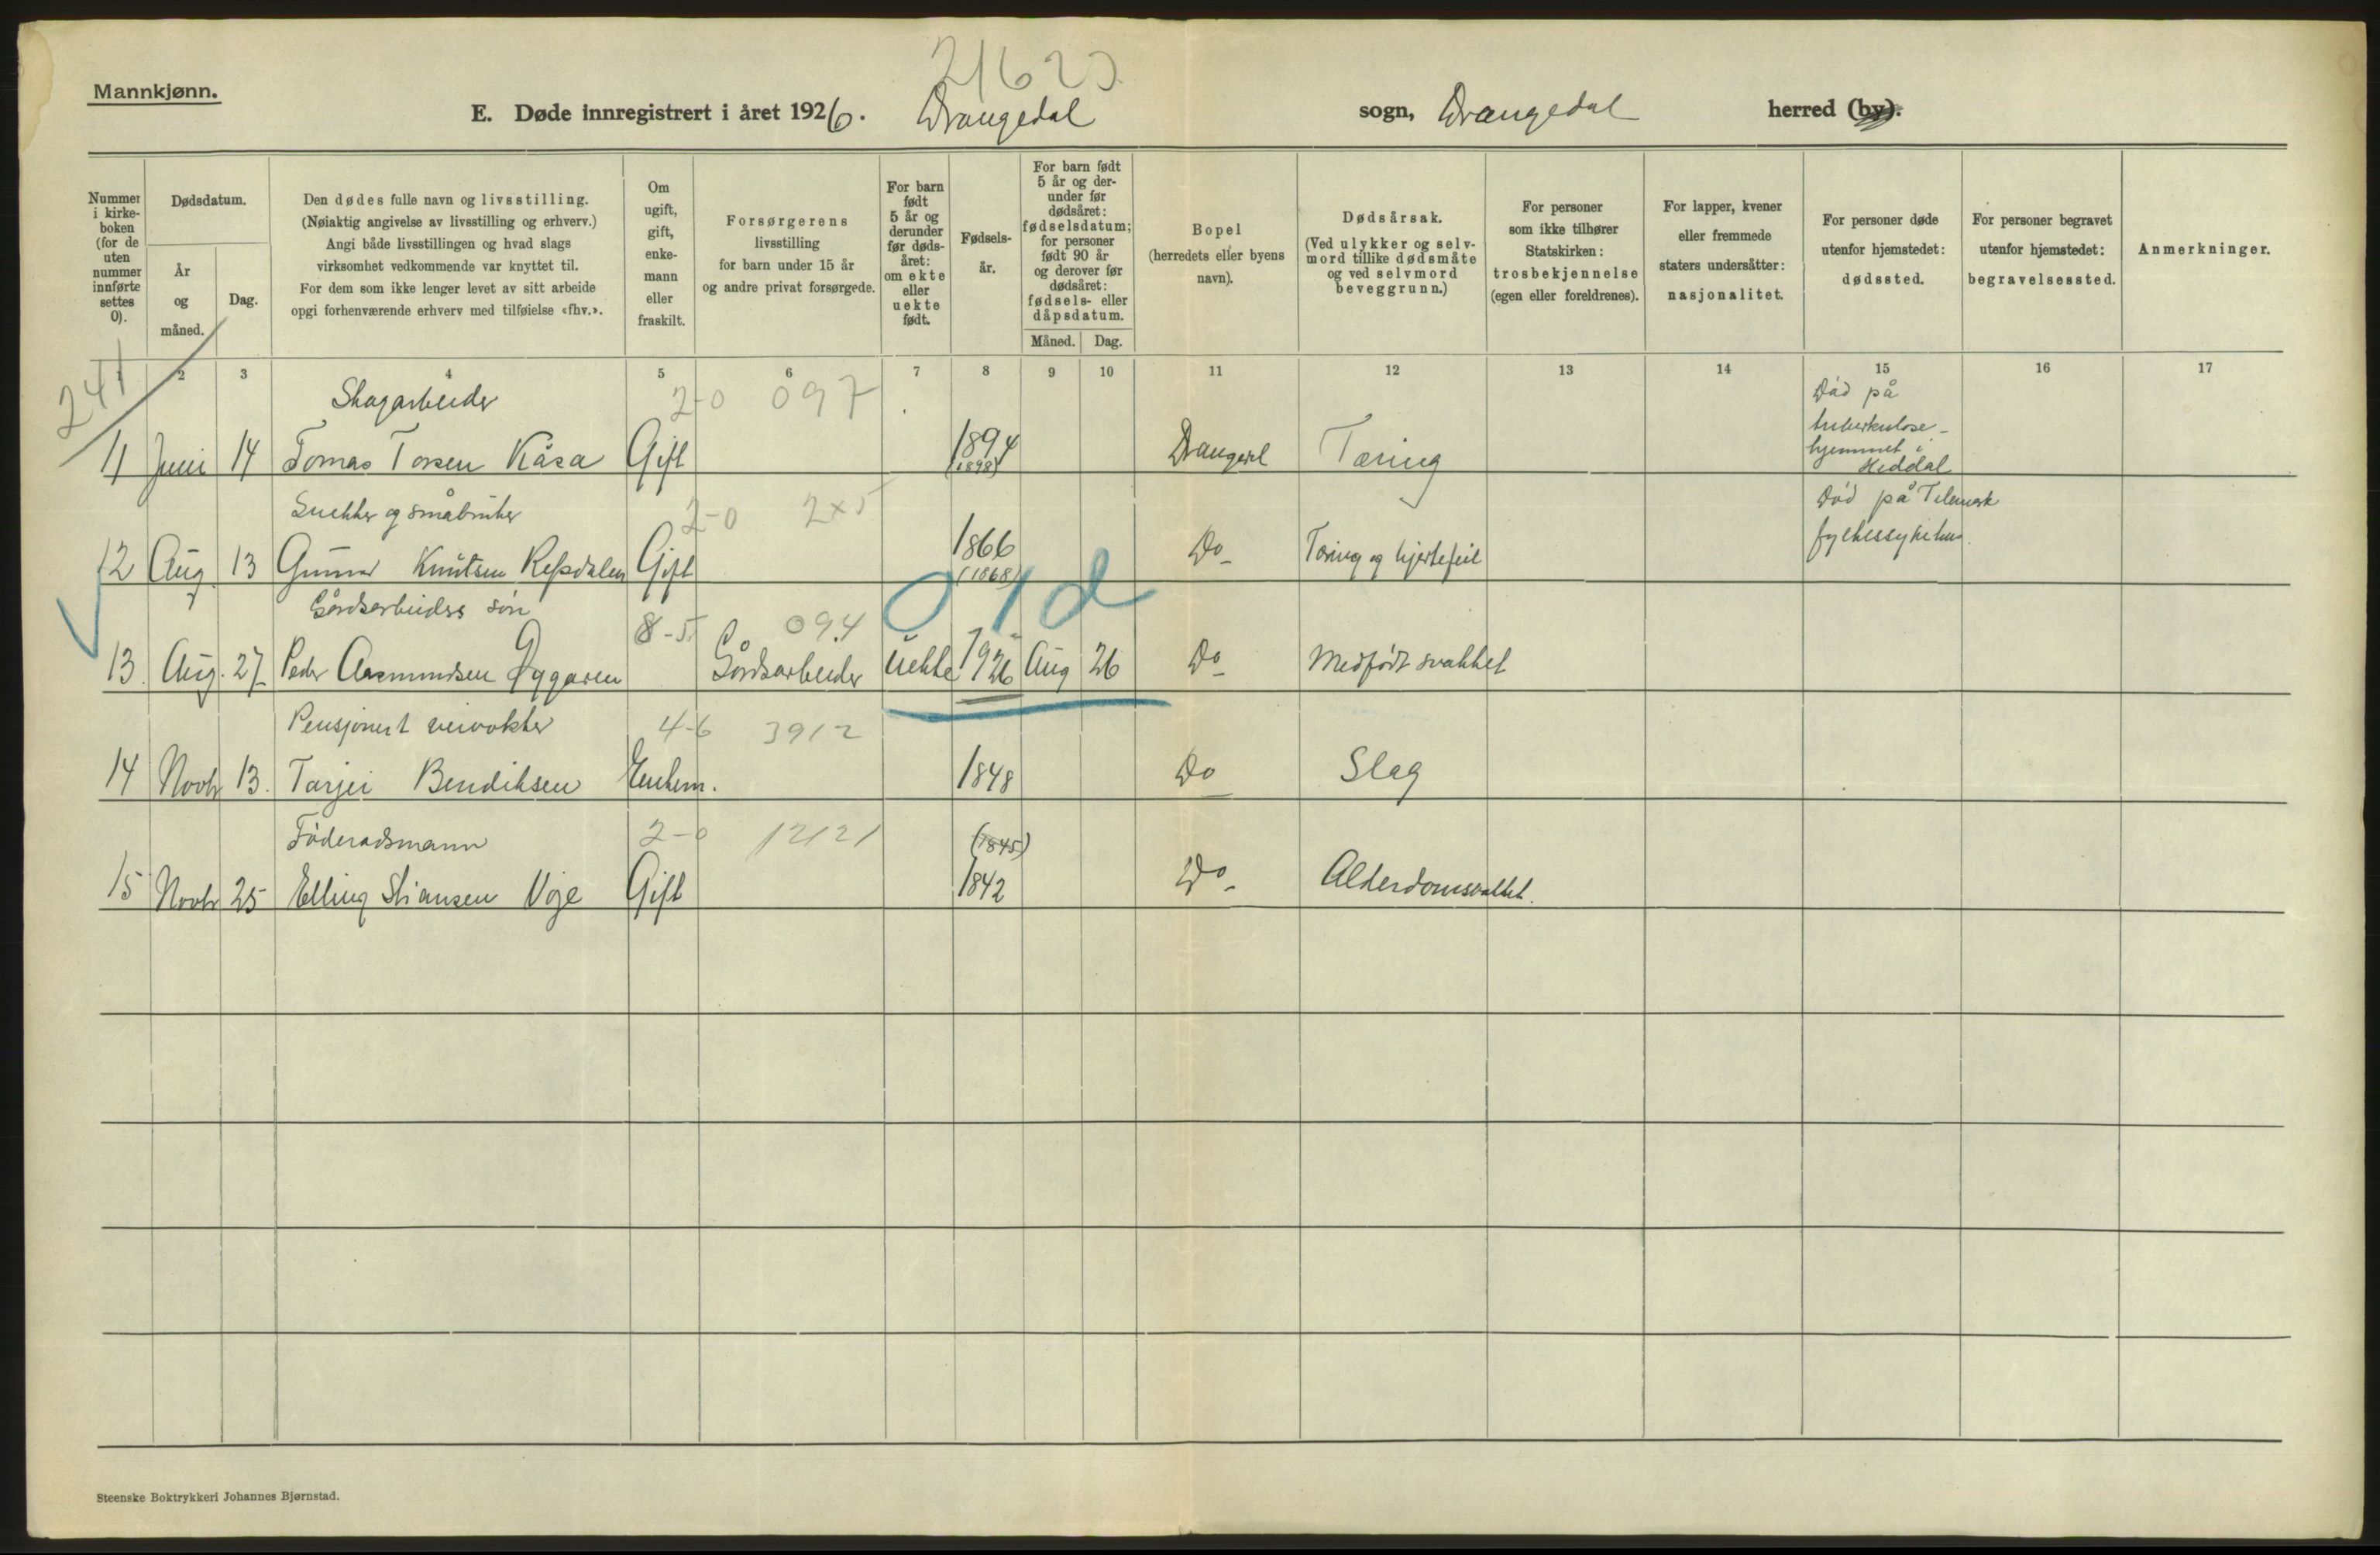 21623
Mannkjønn.
E. Døde innregistrert i året 1926. Drangedal sogn, Drangedal herred (by).
Nummer i kirke- boken (for de uten nummer innførte settes 0).
Dødsdatum.
År og måned.
Dag.
Den dødes fulle navn og livsstilling.
(Nøiaktig angivelse av livsstilling og erhverv.)
Angi både livsstillingen og hvad slags
virksomhet vedkommende var knyttet til.
For dem som ikke lenger levet av sitt arbeide
opgi forhenværende erhverv med tilføielse «fhv.».
Om ugift, gift, enke- mann eller fraskilt.
Forsørgerens
livsstilling
for barn under 15 år
og andre privat forsørgede.
For barn født 5 år og derunder før døds- året: om ekte eller uekte født.
Fødsels- år.
For barn født 5 år og der- under før dødsåret: fødselsdatum; for personer født 90 år og derover før dødsåret: fødsels- eller dåpsdatum.
Måned. Dag.
Bopel
(herredets eller byens
navn).
Dødsårsak.
(Ved ulykker og selv-
mord tillike dødsmåte
og ved selvmord
beveggrunn.)
For personer
som ikke tilhører
Statskirken:
trosbekjennelse
(egen eller foreldrenes).
For lapper, kvener
eller fremmede
staters undersåtter:
nasjonalitet.
For personer døde
utenfor hjemstedet:
dødssted.
For personer begravet
utenfor hjemstedet:
begravelsessted.
Anmerkninger.
241
2 3 4 5 6 7 8 9 10 11 12 13 14 15 16 17
Skogarbeider 2-0 097
Død på
tuberkulose-
hjemmet i
Heddal
11 Juni 14 Tomas Torsen Kåsa Gift 1894 (1898) Drangedal Tæring
Snekker og småbruker 2-0 2x5
Død på Telemark
fylkessykehus.
12 Aug. 13 Gunnar Knutsen Gift 1866 (1868) Do Tæring og hjertefeil
Gårdsarbeiders søn 8-5 094 01d
13. Aug. 27 Peder Aasmundsen Dygaren Gårdsarbeider Uekte 1926 Aug 26 Do Medfødt svakhet
Pensjonert veivokter 4-6 3912
14 Novbr 13. Tarjei Bendiksen Enkem. 1848 Do Slag
Føderadsmann 2-0 12121 (1845)
15 Novbr 25 Elling Stiansen Voje Gift 1842 Do Alderdomsvakhet.
Steenske Boktrykkeri Johannes Bjørnstad.